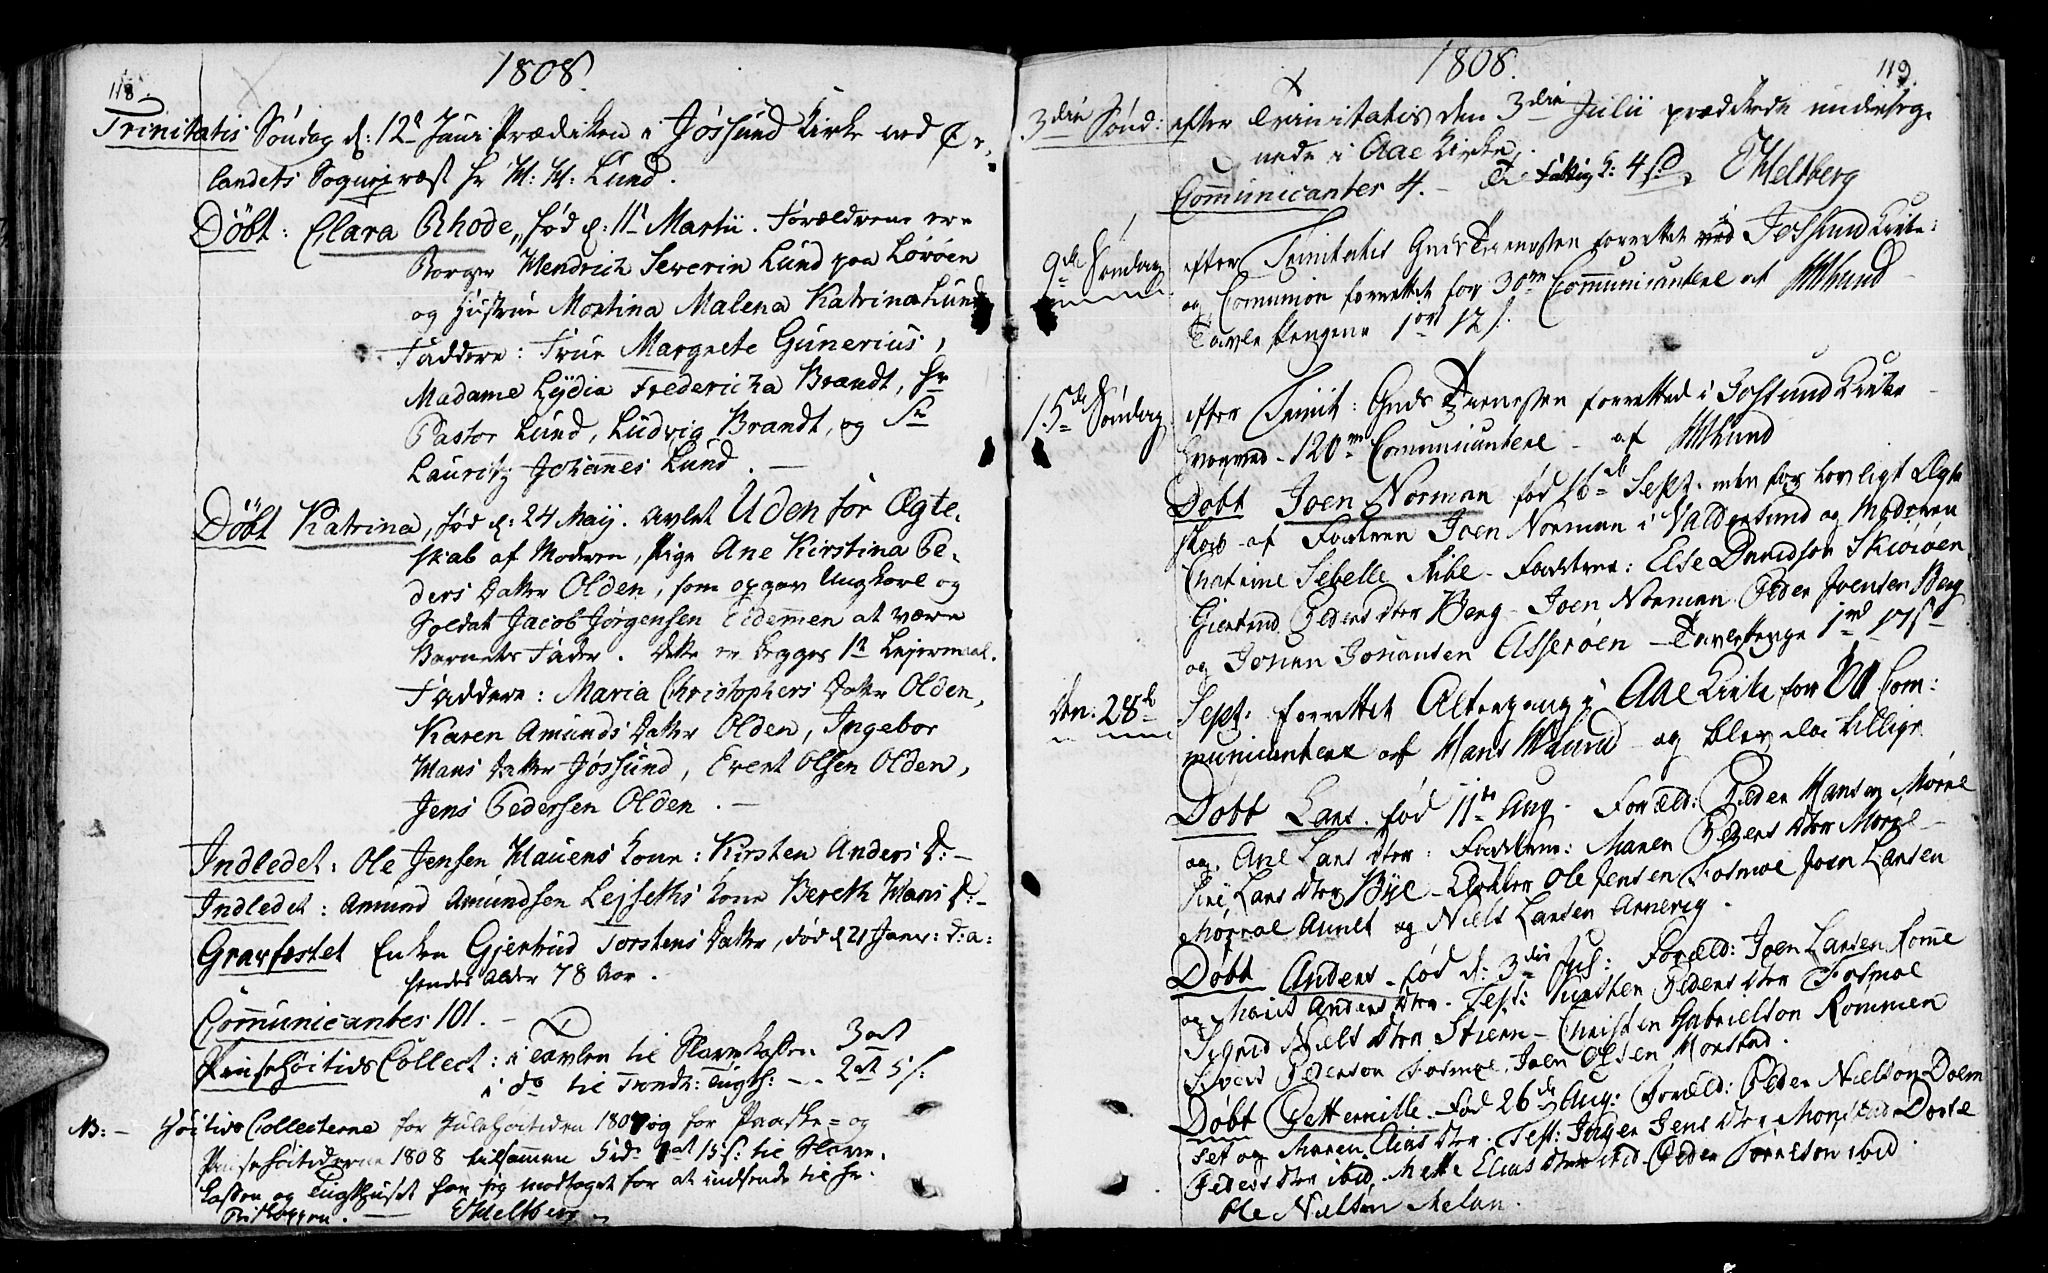 118.
1808.
Trinitatis Söndag d: 12te Juni Prædiken i Jössund Kirke ved Ør¬
landets Sognepræst Hr H: H: Lund.
Döbt: Clara Rhode, föd d: 11te Martii. Forældrene ere
Borger Hendrich Severin Lund paa Löröen
og Hustrue Martina Malena Katrina Lund
Faddere: Frue Margrete Gunerius,
Madame Lydia Fredericha Brandt, Hr
Pastor Lund, Ludvig Brandt, og Sr
Lauritz Johannes Lund. —
Döbt Katrina, föd d: 24 Maÿ. avlet Uden for Ægte¬
skab af Moderen, Pige Ane Kirstina Pe¬
ders Datter Olden, som opgav Ungkarl og
Soldat Jacob Jörgensen Eidemmen at være
Barnets Fader. Dette er begges 1te Lejermaal.
Faddere: Maria Christophers Datter Olden,
Karen Amunds Datter Olden, Ingebor
Hans Datter Jössund, Evert Olsen Olden,
Jens Pedersen Olden. —
Indledet: Ole Jensen Hauens Kone: Kirsten Anders D: —
Indledet: Amund Amundsen Lejseths Kone Bereth Hans D: —
Gravfæstet Enken Gjertrud Torstens Datter, död d 21 Janv: d: a:
hendes Alder 78 Aar.
Communicantes 101. —
PinseHöitids Collect: i Tavlen til Slavekassen 3 ort
i do til Trondh: Tugth: — 2 ort 5 s:
NB: — Höitids Collecterne for JuleHöitiden 1807 og for Paaske= og
PinseHöitiderne 1808 tilsammen 5 rd 15 s: til Slave¬
kassen og Tugthuset har jeg modtaget for at indsende til Hr.
Biskoppen. — Ehleltberg
119.
1808.
3die Sönd: efter Trinitatis den 3die Julii prædikede underteg¬
nede i Aae Kirke.
Communicanter 4. — Fattig 4 s
9de Söndag efter Trinitatis GudsTienesten forrettet ved Jossund Kirke:
og Comunion forrettet for 30 Communicantere af HHLund
Tavle Pengene 1 ort 12 s.
15de Söndag efter Trinit: Guds Tienesten forretted i Jossund Kirke
120 Communicantere — af HHLund
Döbt Joen Norman föd 16de Sept. uden for lovligt Ægte
skab af Faderen Joen Norman i Valdersund og Moderen
Chatrine Sebelle Ribe — Faddere: Else Davidson Skiöröen
Giertrud Peders dter Berg — Joen Norman Peder Joensen Berg
og Johan Johansen Asseröen — Tavlepenge
den. 28de Sept. forrettet Altergang i Aae Kirke for Com:
municantere af Hans HLund og blev da tillige
Döbt Lars. föd 11te Aug. Foræld: Peder Hansen Mörre
og Ane Lars dter: Faddere: Maren Peders dter Mörre
Lars dter Bye — Klokker Ole Jensen Fosmoe Joen Larsen
Aunet og Niels Larsen Arnevig.
Döbt Anders föd d: 3die Jul: Foræld: Joen Larsen Romme
og Marit Anders dter. Test: Kirsten Peders dter Fosmoe
Sigrid Niels dter Stiern — Christen Gabrielson Rommen
Sivert Pederson Fosmoe, Joen Olsen Monstad.
Döbt Petternille föd 26de Aug: Foræld: Peder Nielson Dolm
set og Maren Elias dter. Test: Inger Jens dter Monstad Dorte
Peders dter ibid, Mette Elias dter ibid Peder ibid
Ole Nielson Melan.